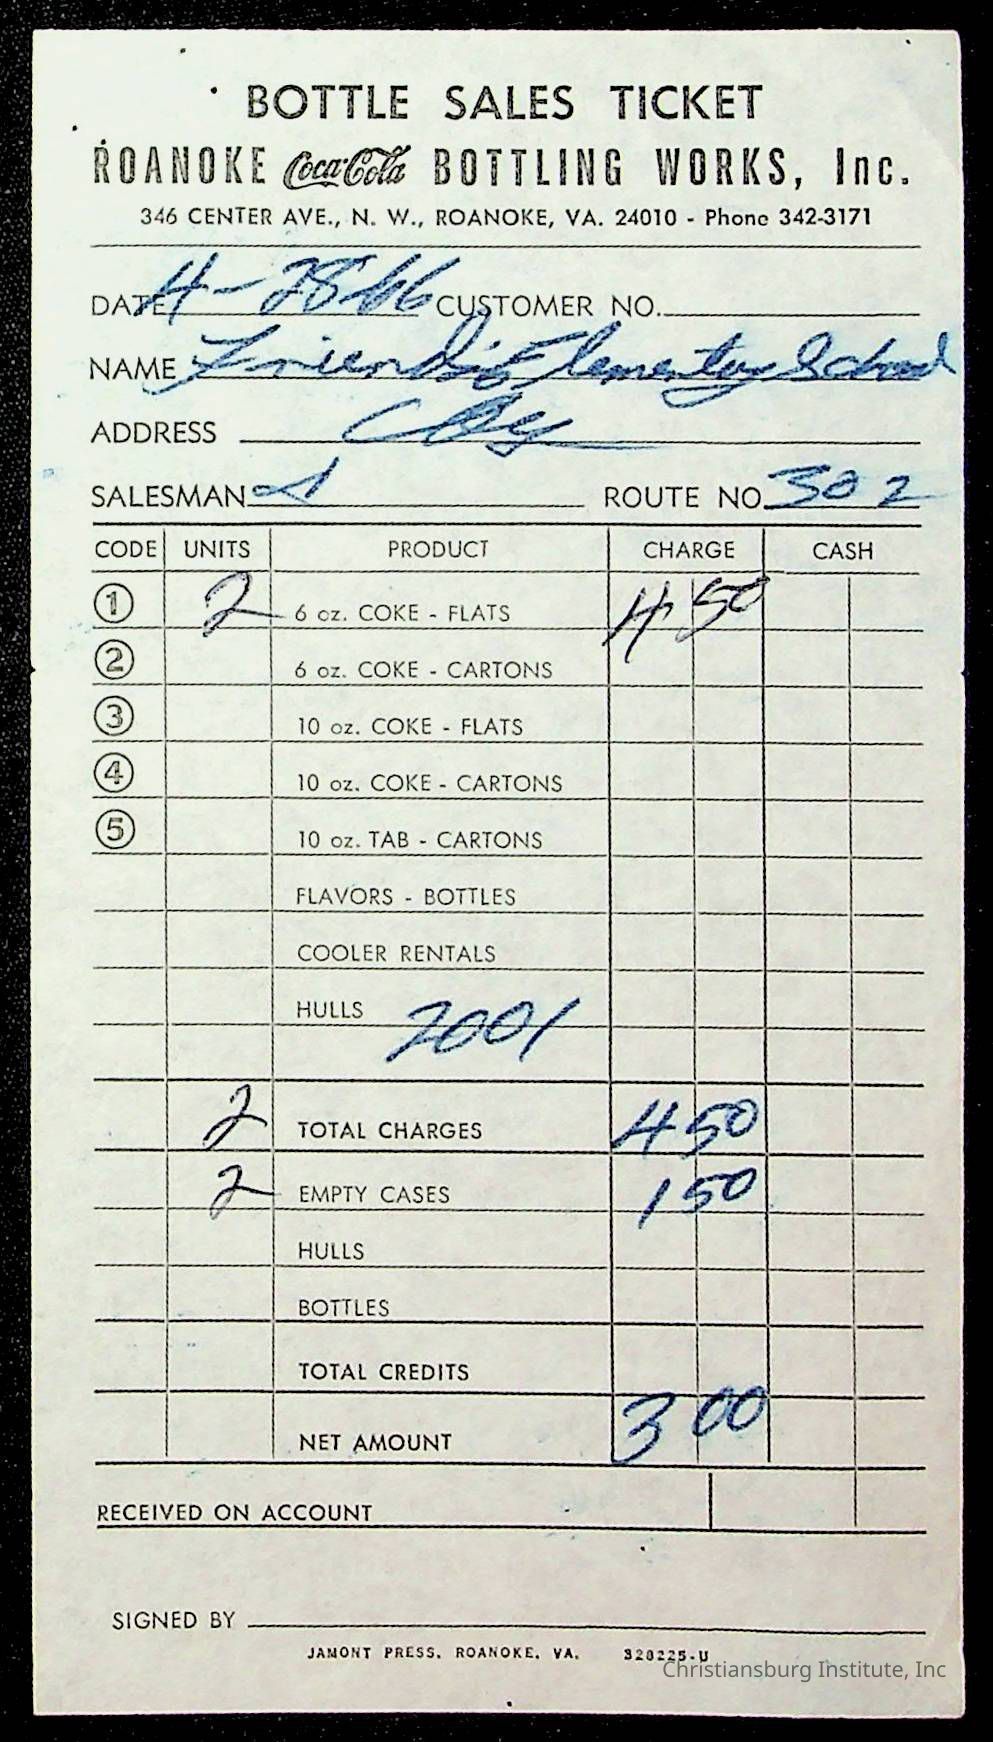 BOTTLE SALES TICKET
ROANOKE Coca-Cola BOTTLING WORKS, Inc.
346 CENTER AVE., N. W., ROANOKE, VA. 24010 - Phone 342-3171
DATE 4-28-66 CUSTOMER NO.
NAME Friends Elementary School
ADDRESS City
SALESMAN ROUTE NO. 302
CODE UNITS PRODUCT CHARGE CASH
1 2 6 oz. COKE - FLATS 4 50
2 6 oz. COKE - CARTONS
3 10 oz. COKE - FLATS
4 10 oz. COKE - CARTONS
5 10 oz. TAB - CARTONS
FLAVORS - BOTTLES
COOLER RENTALS
HULLS 2001
2 TOTAL CHARGES 4 50
2 EMPTY CASES 1 50
HULLS
BOTTLES
TOTAL CREDITS
NET AMOUNT 3 00
RECEIVED ON ACCOUNT
SIGNED BY
JAMONT PRESS, ROANOKE, VA. 328225-U
Christiansburg Institute, Inc